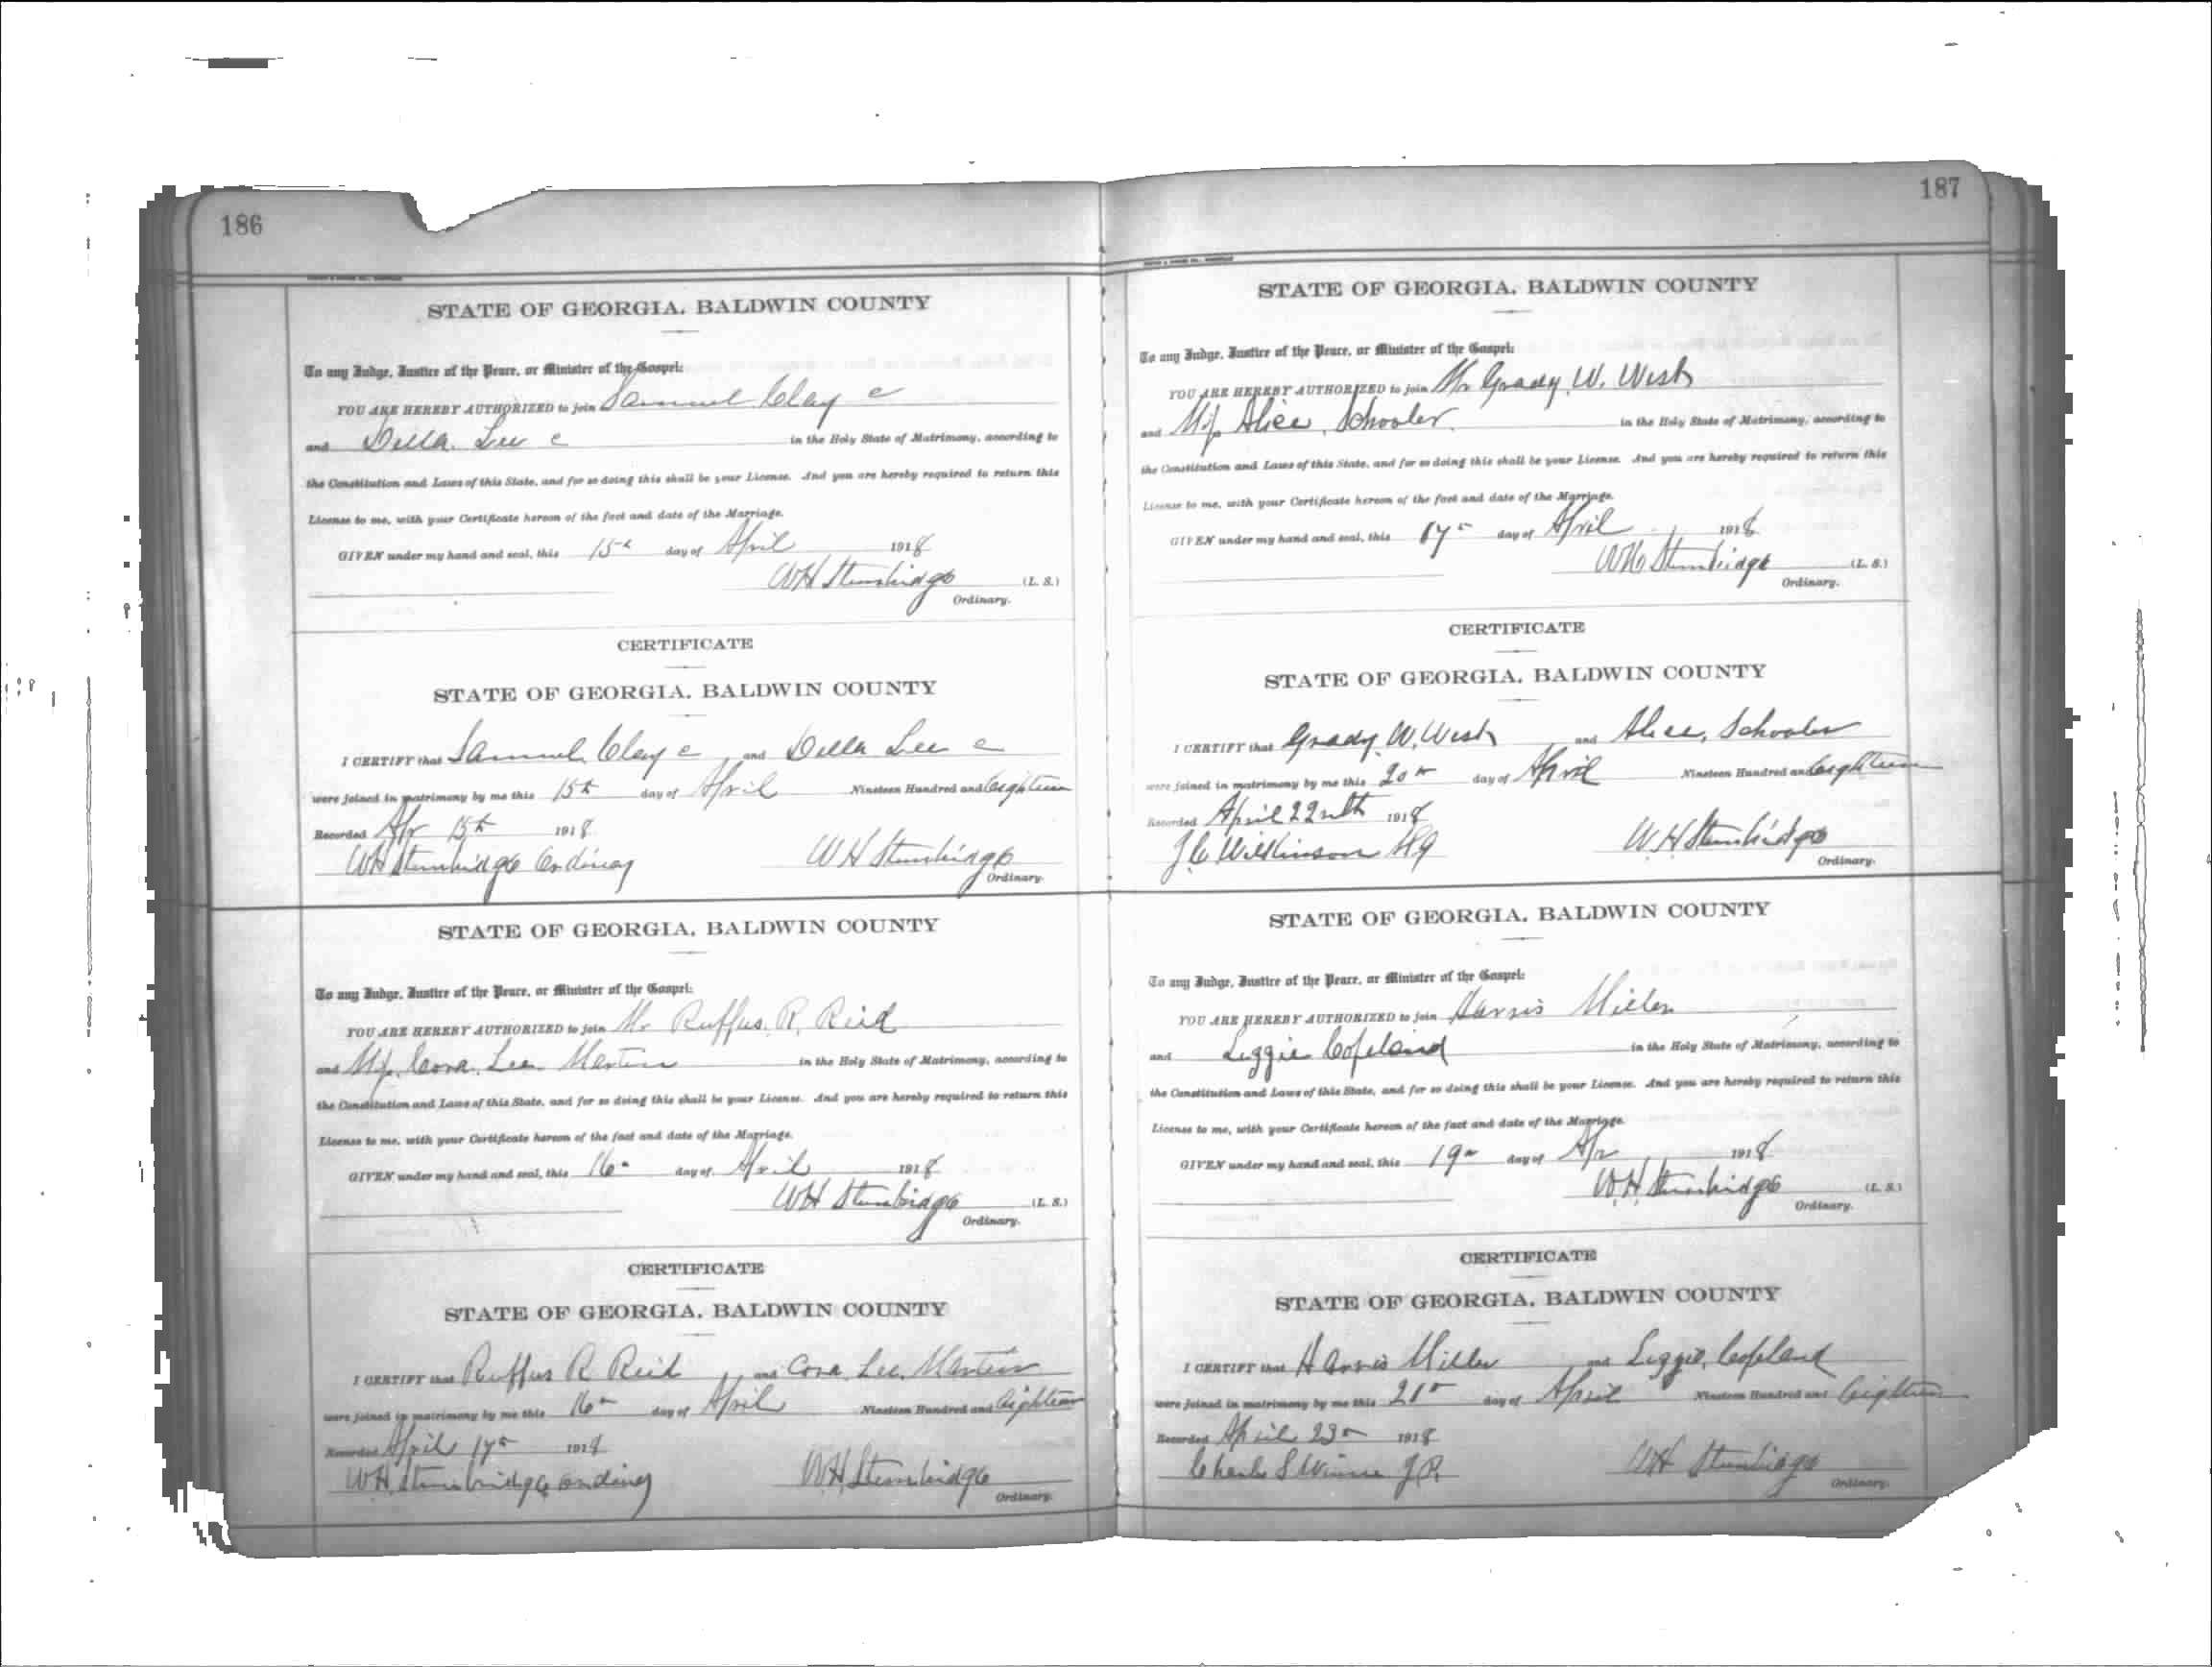 186
STATE OF GEORGIA, BALDWIN COUNTY
To any Judge, Justice of the Peace, or Minister of the Gospel:
YOU ARE HEREBY AUTHORIZED to join Samuel Clay c
and Della Lee c in the Holy State of Matrimony, according to
the Constitution and Laws of this State, and for so doing this shall be your License. And you are hereby required to return this
License to me, with your Certificate hereon of the fact and date of the Marriage.
GIVEN under my hand and seal, this 15th day of April 1918
WH Stembridge (L. S.)
Ordinary.
CERTIFICATE
STATE OF GEORGIA, BALDWIN COUNTY
I CERTIFY that Samuel Clay c and Della Lee c
were joined in matrimony by me this 15th day of April Nineteen Hundred and Eighteen
Recorded Apr 15th 1918
WH Stembridge Ordinary WH Stembridge
Ordinary.
STATE OF GEORGIA, BALDWIN COUNTY
To any Judge, Justice of the Peace, or Minister of the Gospel:
YOU ARE HEREBY AUTHORIZED to join Mr Ruffus R. Reid
and Miss Cora Lee Martin in the Holy State of Matrimony, according to
the Constitution and Laws of this State, and for so doing this shall be your License. And you are hereby required to return this
License to me, with your Certificate hereon of the fact and date of the Marriage.
GIVEN under my hand and seal, this 16th day of April 1918
WH Stembridge (L. S.)
Ordinary.
CERTIFICATE
STATE OF GEORGIA, BALDWIN COUNTY
I CERTIFY that Ruffus R Reid and Cora Lee Martin
were joined in matrimony by me this 16th day of April Nineteen Hundred and Eighteen
Recorded April 17th 1918
WH Stembridge Ordinary WH Stembridge
Ordinary.
187
STATE OF GEORGIA, BALDWIN COUNTY
To any Judge, Justice of the Peace, or Minister of the Gospel:
YOU ARE HEREBY AUTHORIZED to join Mr Grady W. West
and Miss Alice Schooler in the Holy State of Matrimony, according to
the Constitution and Laws of this State, and for so doing this shall be your License. And you are hereby required to return this
License to me, with your Certificate hereon of the fact and date of the Marriage.
GIVEN under my hand and seal, this 17th day of April 1918
WH Stembridge (L. S.)
Ordinary.
CERTIFICATE
STATE OF GEORGIA, BALDWIN COUNTY
I CERTIFY that Grady W. West and Alice Schooler
were joined in matrimony by me this 20th day of April Nineteen Hundred and Eighteen
Recorded April 22nth 1918
J C Wilkinson WH Stembridge
Ordinary.
STATE OF GEORGIA, BALDWIN COUNTY
To any Judge, Justice of the Peace, or Minister of the Gospel:
YOU ARE HEREBY AUTHORIZED to join Harris Miller
and Lizzie Copeland in the Holy State of Matrimony, according to
the Constitution and Laws of this State, and for so doing this shall be your License. And you are hereby required to return this
License to me, with your Certificate hereon of the fact and date of the Marriage.
GIVEN under my hand and seal, this 19th day of Apr 1918
WH Stembridge (L. S.)
Ordinary.
CERTIFICATE
STATE OF GEORGIA, BALDWIN COUNTY
I CERTIFY that Harris Miller and Lizzie Copeland
were joined in matrimony by me this 21st day of April Nineteen Hundred and Eighteen
Recorded April 23rd 1918
Charles S J.P. WH Stembridge
Ordinary.